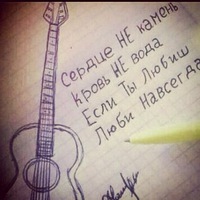 Сердце НЕ камень
кровь НЕ вода
Если Ты Любиш
Люби Навсегда